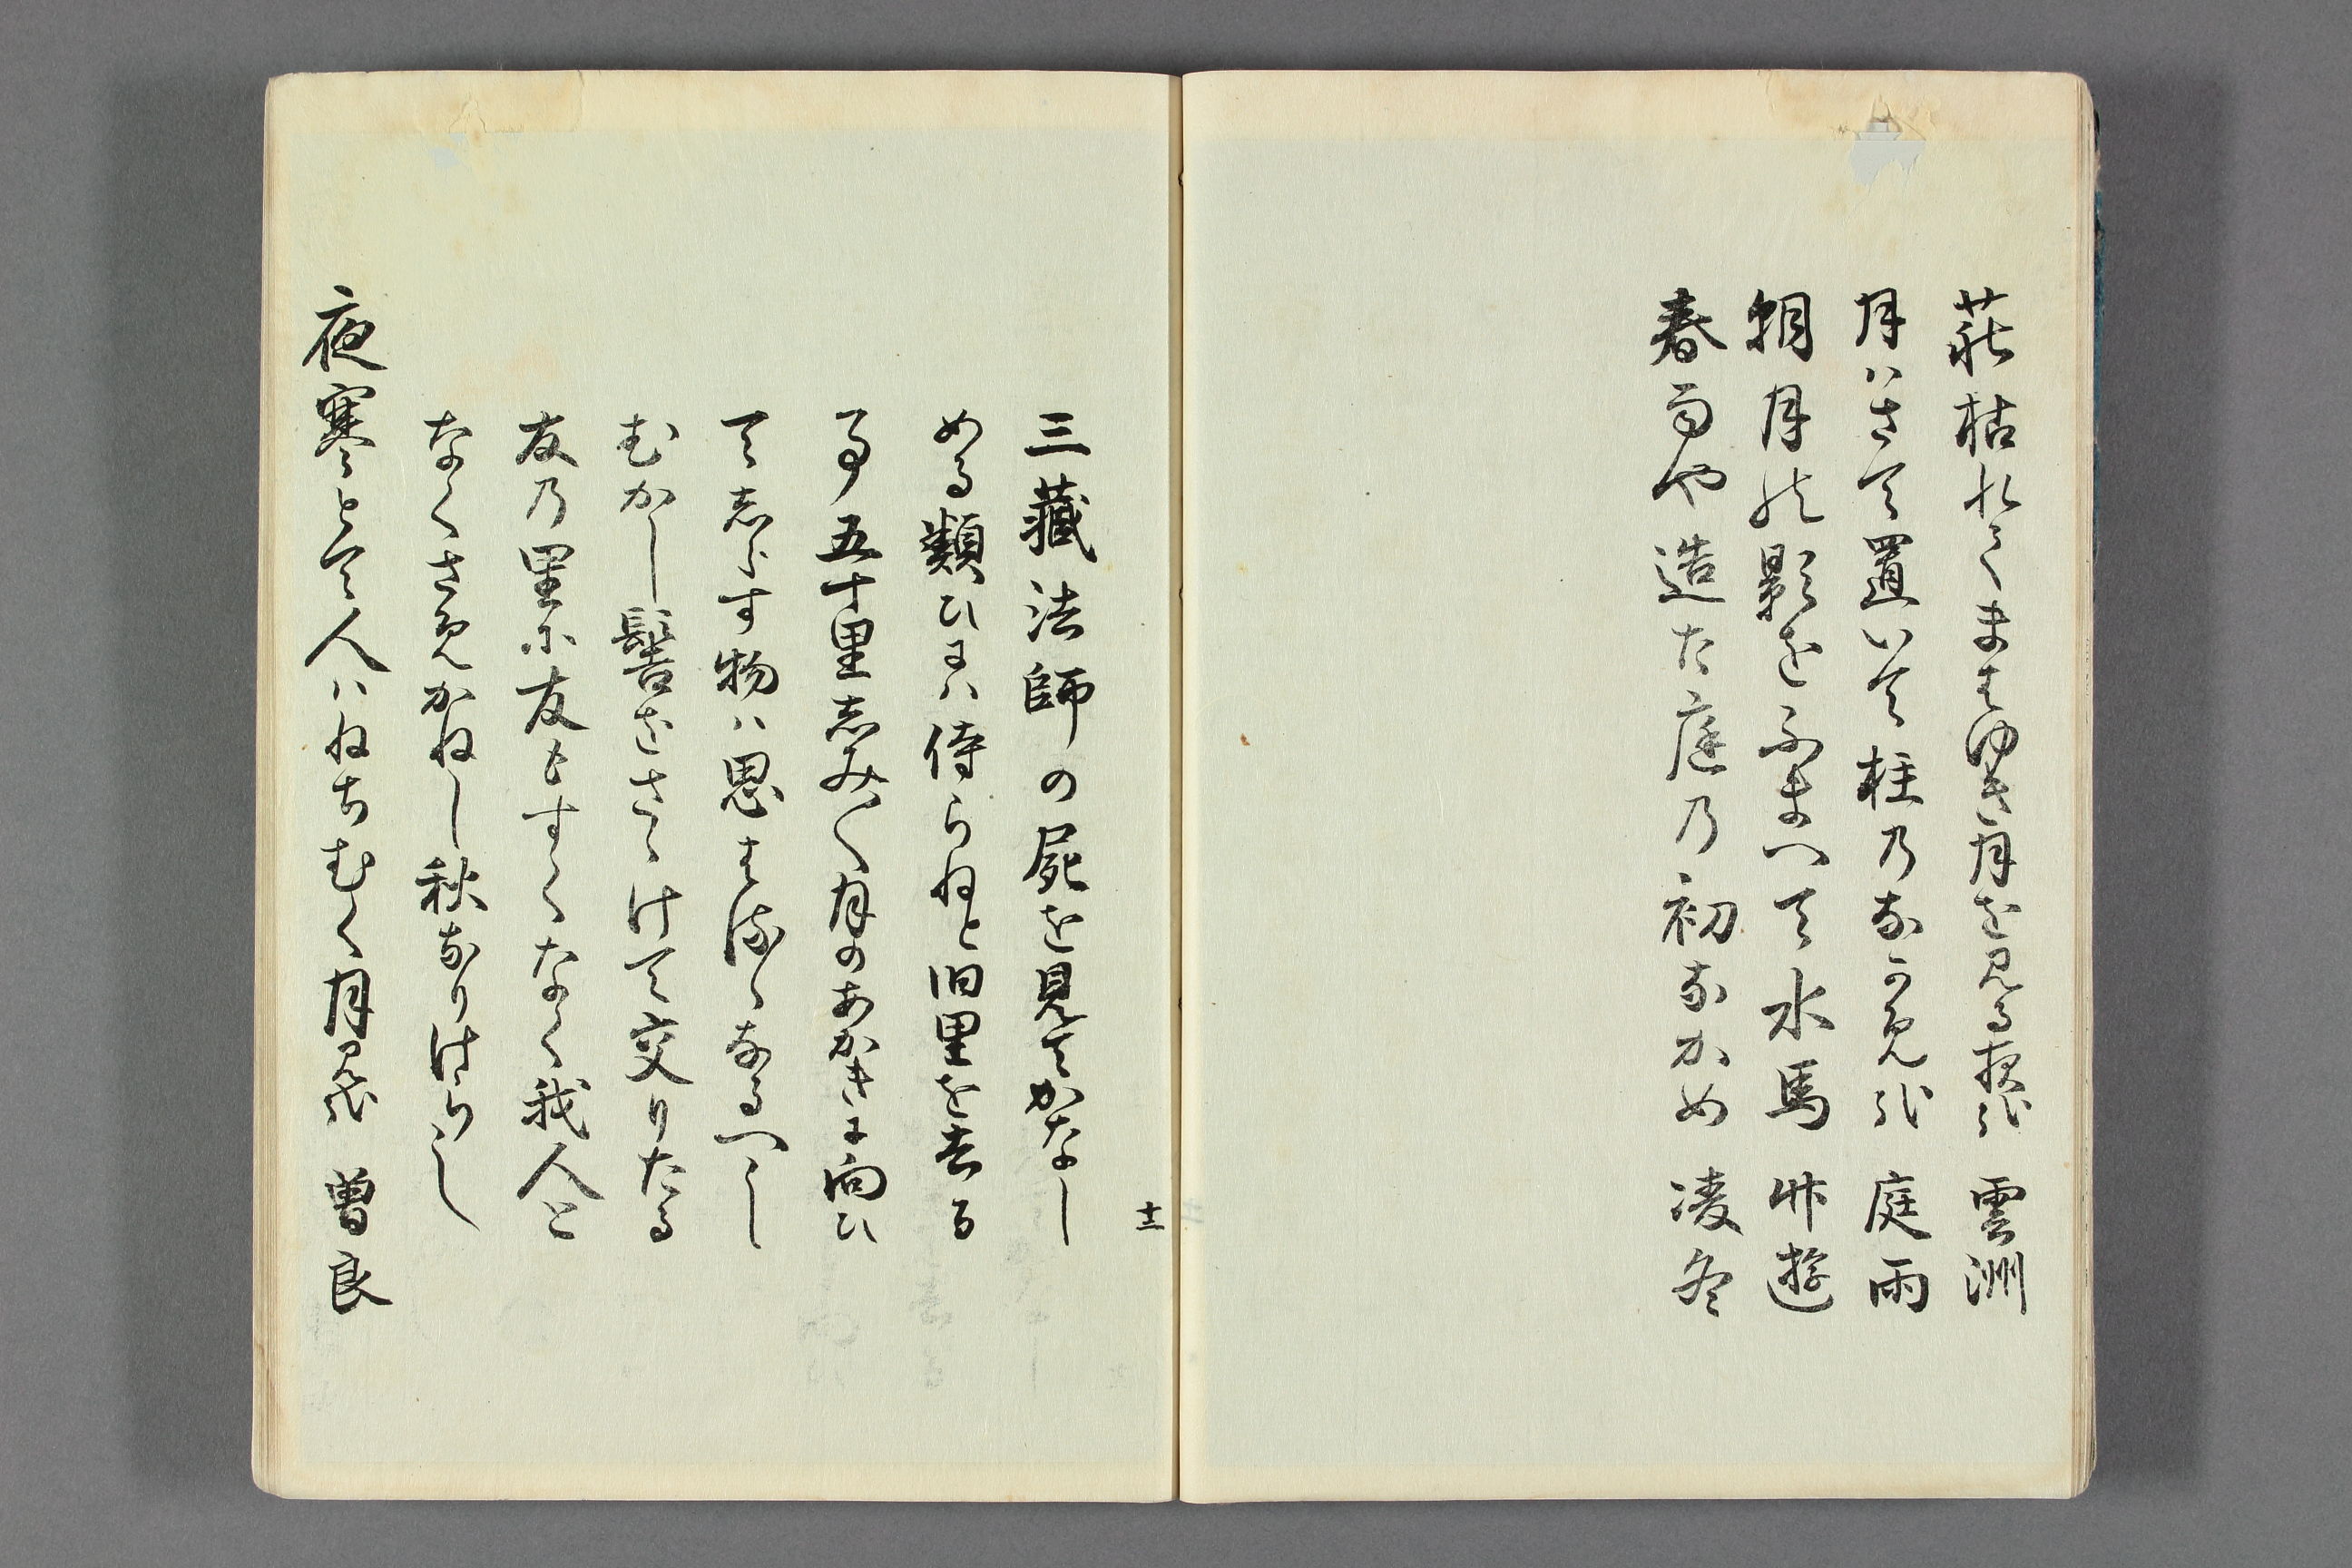 萩枯れてまはゆき月を見る夜哉 雲洲
月はさて置いて柱乃なかめ哉 庭雨
朝月の影をふまへて水馬 竹遊
春雨や造た庭乃初なかめ 凌冬
十二
三藏法師の屍を見てかなし
める類ひには侍らねと旧里を去る
事五十里しみ〳〵月のあかきに向ひ
てしらす物は思はるゝなるへし
むかし髻をさゝけて交りたる
友乃里に友もすくなく我人と
なくさめかねし秋なりけらし
夜寒とて人はねちむく月見哉 曽良